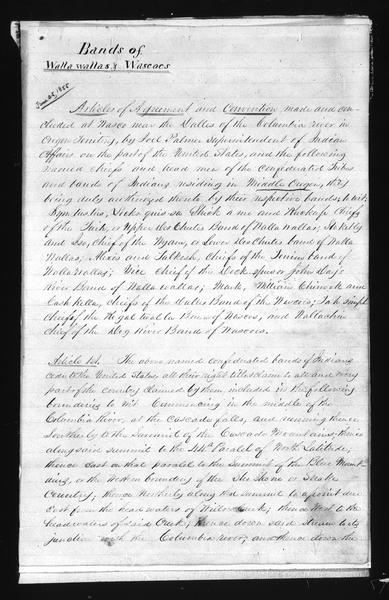 Bands of
Walla wallas & Wascoes
June 25, 1855
Articles of Agreement and Convention, made and con-
cluded at Wasco near the Dalles of the Columbia river in
Oregon Territory, by Joel Palmer superintendent of Indian
Affairs on the part of the United States, and the following
named chiefs and head men of the confederated Tribes
and bands of Indians residing in Middle Oregon, they
being duly authorized thereto by their respective bands, to wit,
Symtustus, Locks quis sa Shick a me and Kuckup Chiefs
of the Taih, or Upper Des Chutes Band of Walla Wallas; Stocketly
and Iso, Chiefs of the Wyam, or Lower Des Chutes band of Walla
Wallas, Alexis and Talkish, Chiefs of the Tenino band of
Walla Wallas; Yice Chief of the Dock spus or John Day's
River Band of Walla wallas; Mark, William Chinook and
Cash Kella, Chiefs of the Dalles Band of the Wascoes; Toh simph
Chief of the Ki gal twal la Band of Wascoes, and Wallachin
chief of the Dog River Band of Wascoes.
Article 1st. The above named confederated bands of Indians
cede to the United States all their right title & claim to all and every
part of the country claimed by them, included in the following
boundaries to wit Commencing in the middle of the
Columbia River, at the Cascade falls, and running thence
Southerly to the summit of the Cascade Mountains; thence
along said summit to the 44th Parallel of North Latitude,
thence east on that parallel to the Summit of the Blue Mount-
ains, or the western boundary of the Sho Shone or Snake
Country; thence Northerly along that summit to a point due
East from the head waters of Willow Creek; thence West to the
headwaters of said Creek; thence down said stream to its
junction with the Columbia river; and thence down the